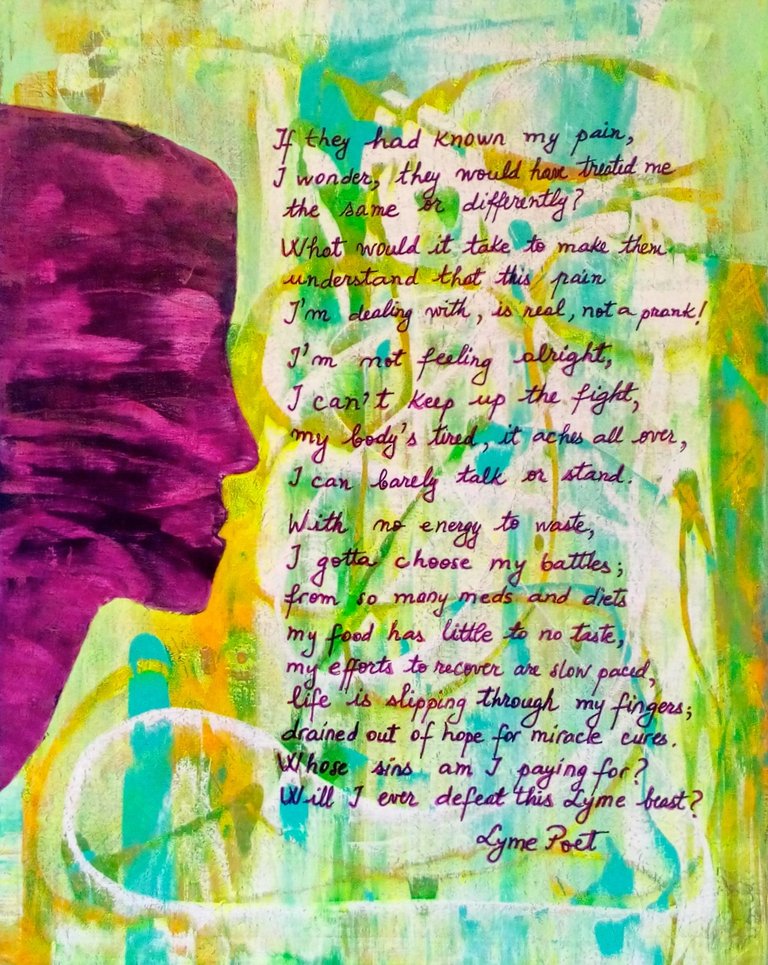 If they had known my pain,
I wonder, they would have treated me
the same or differently?
What would it take to make them
understand that this pain
I'm dealing with, is real, not a prank!
I'm not feeling alright,
I can't keep up the fight,
my body's tired, it aches all over,
I can barely talk or stand.
With no energy to waste,
I gotta choose my battles;
from so many meds and diets
my food has little to no taste,
my efforts to recover are slow paced,
life is slipping through my fingers;
drained out of hope for miracle cures.
Whose sins am I paying for?
Will I ever defeat this Lyme beast?
Lyme Poet